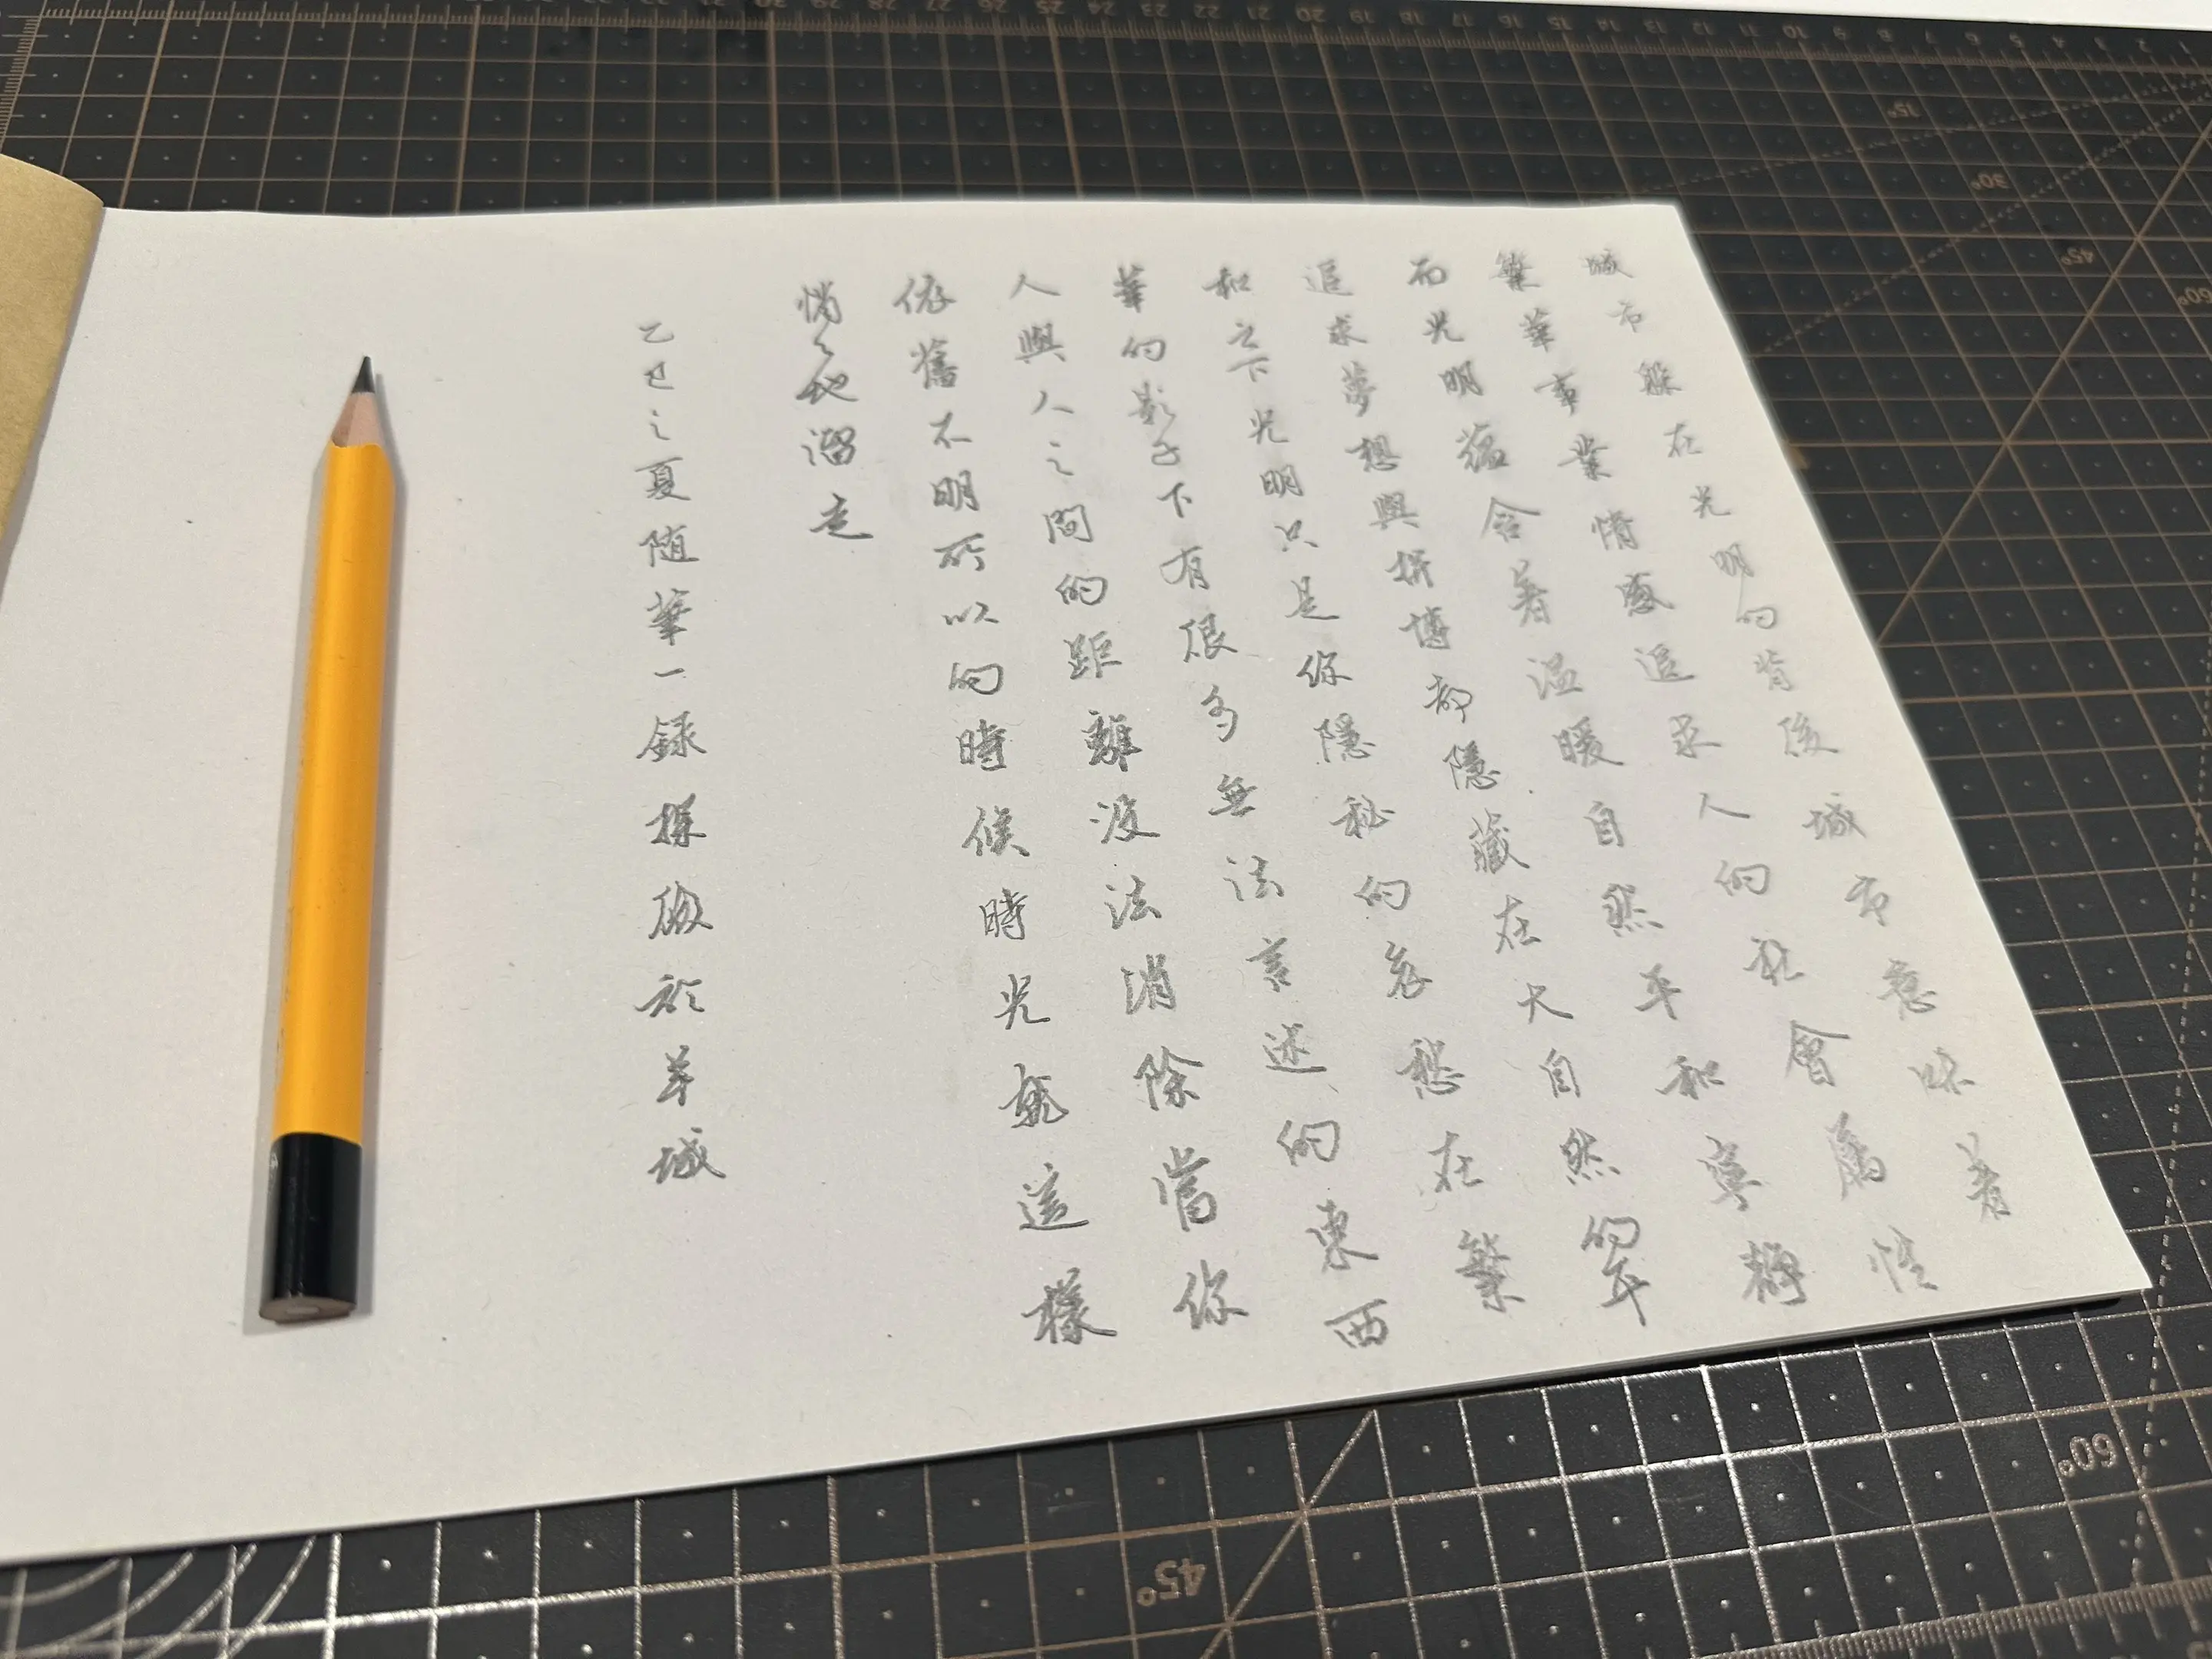 城市躲在光明的背後城市意味着
繁華事業情感追求人的社會屬性
而光明蕴含着温暖自然平和寧靜
追求夢想與拼博都隱藏在大自然的平
和之下光明只是你隱秘的哀愁在繁
華的影子下有很多無法言述的東西
人與人之間的距離没法消除當你
依舊不明所以的時候時光就這樣
悄々地溜走
乙巳之夏随筆一録於羊城
45°
60°
30°
45°
60°